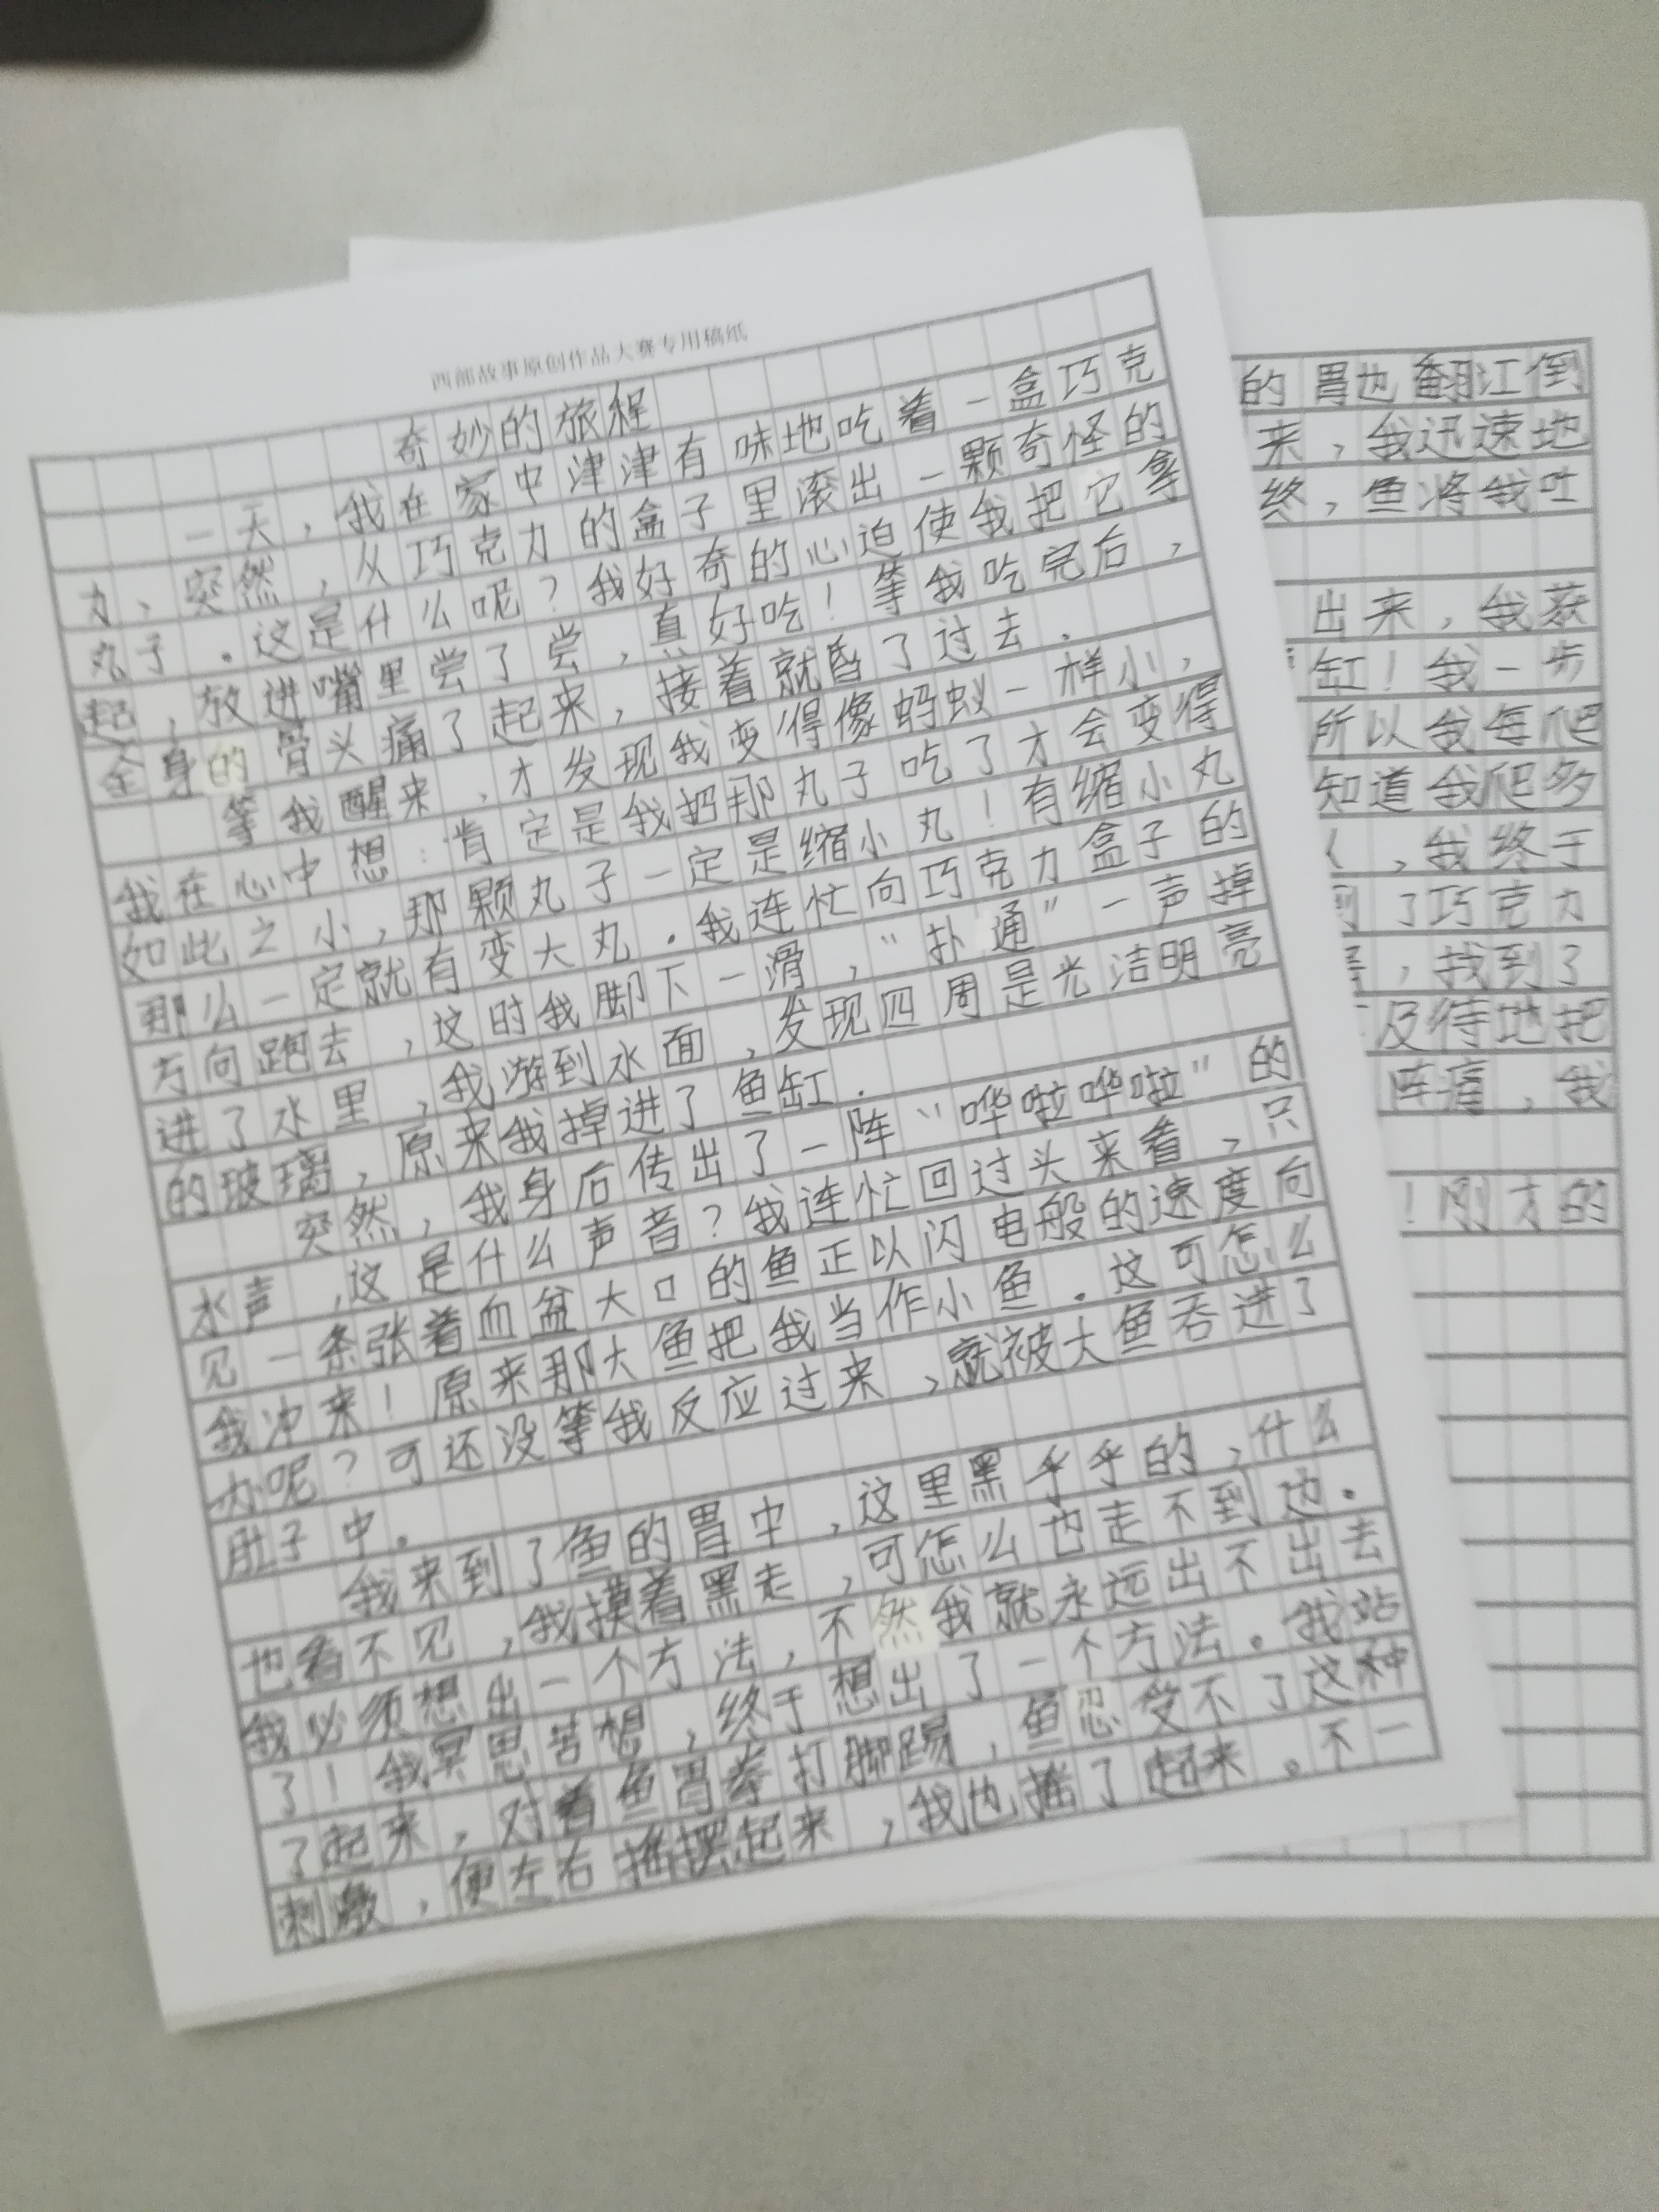 西部故事原创作品大赛专用稿纸
奇妙的旅程
一天，我在家中津津有味地吃着一盒巧克
力，突然，从巧克力的盒子里滚出一颗奇怪的
丸子。这是什么呢？我好奇的心迫使我把它拿
起，放进嘴里尝了尝，真好吃！等我吃完后，
全身的骨头痛了起来，接着就昏了过去。
等我醒来，才发现我变得像蚂蚁一样小，
我在心中想：肯定是我把那丸子吃了才会变得
如此之小，那颗丸子一定是缩小丸！有缩小丸
那么一定就有变大丸。我连忙向巧克力盒子的
方向跑去，这时我脚下一滑，“扑通”一声掉
进了水里，我游到水面，发现四周是光洁明亮
的玻璃，原来我掉进了鱼缸。
突然，我身后传出了一阵“哗啦哗啦”的
水声，这是什么声音？我连忙回过头来看，只
见一条张着血盆大口的鱼正以闪电般的速度向
我冲来！原来那大鱼把我当作小鱼。这可怎么
办呢？可还没等我反应过来，就被大鱼吞进了
肚子中。
我来到了鱼的胃中，这里黑乎乎的，什么
也看不见，我摸着黑走，可怎么也走不到边。
我必须想出一个方法，不然我就永远出不出去
了！我冥思苦想，终于想出了一个方法。我站
了起来，对着鱼胃拳打脚踢，鱼忍受不了这种
刺激，便左右摇摆起来，我也摇了起来。不一
的胃也翻江倒
来，我迅速地
终，鱼将我吐
出来，我获
缸！我一步
所以我每爬
知道我爬多
，我终于
了巧克力
，找到了
及待地把
阵痛，我
！刚才的